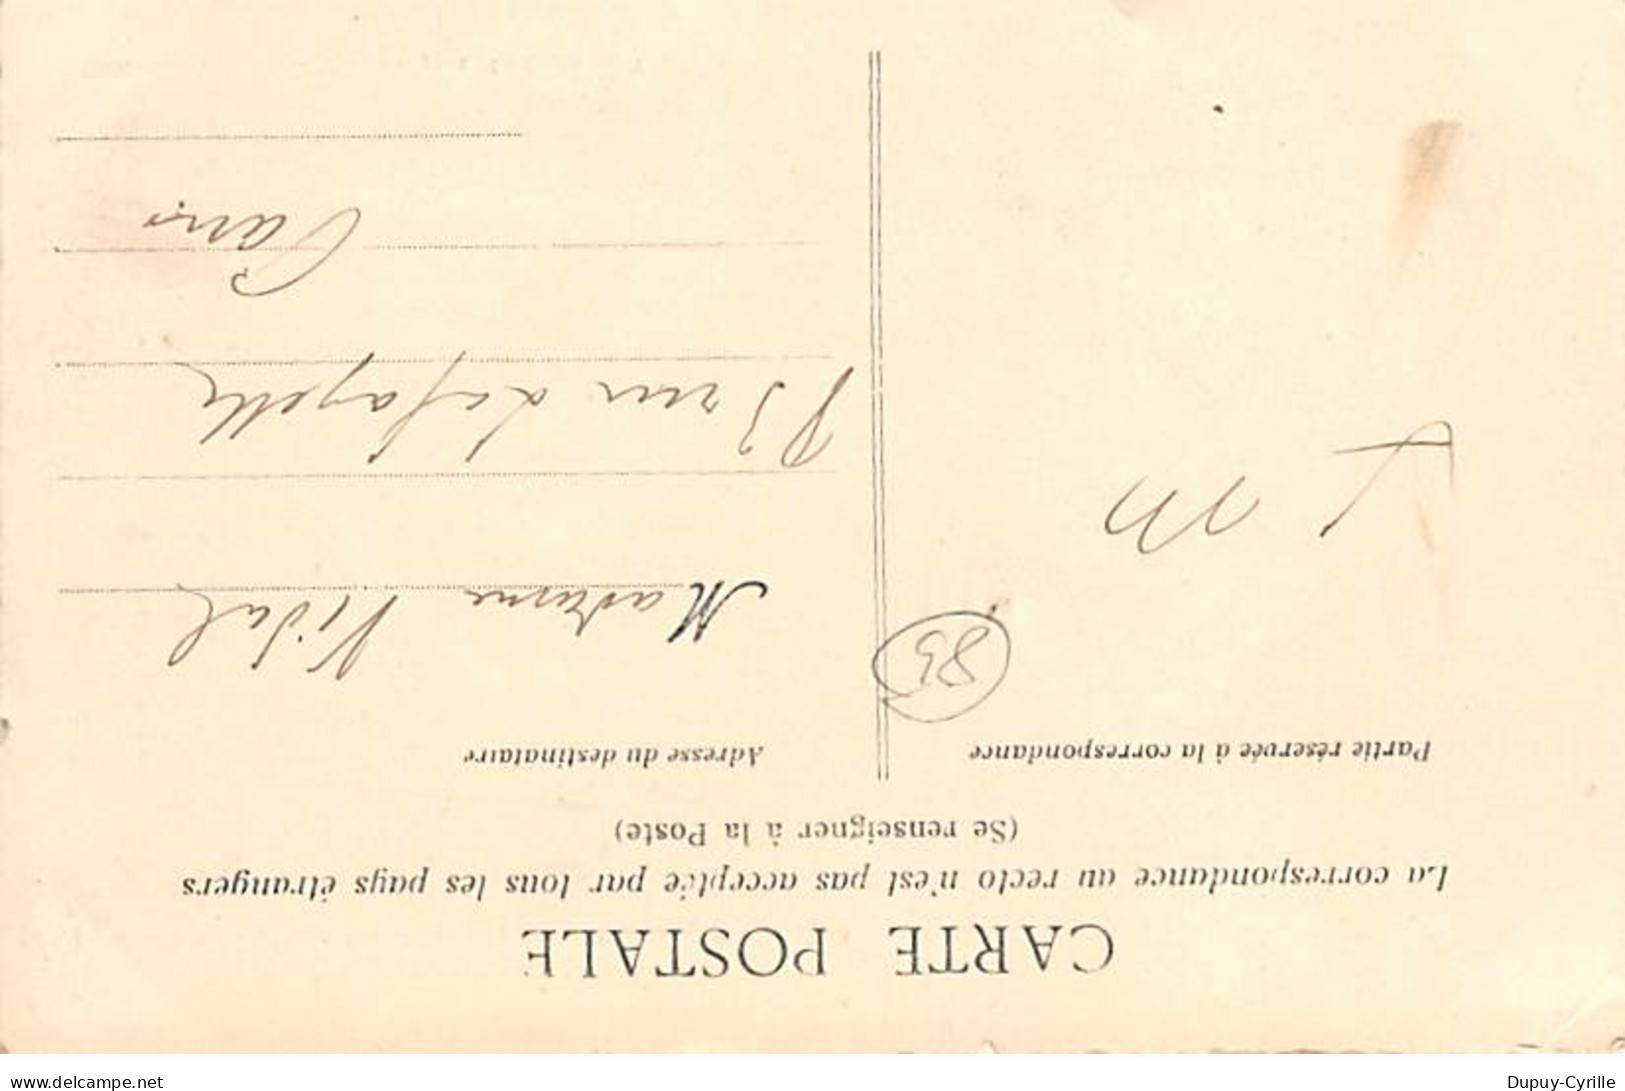 CARTE POSTALE
La correspondance au recto n'est pas acceptée par tous les pays étrangers
(Se renseigner à la Poste)
Partie réservée à la correspondance
Adresse du destinataire
Madame Vidal
rue Lafayette
Paris
delcampe.net
Dupuy-Cyrille